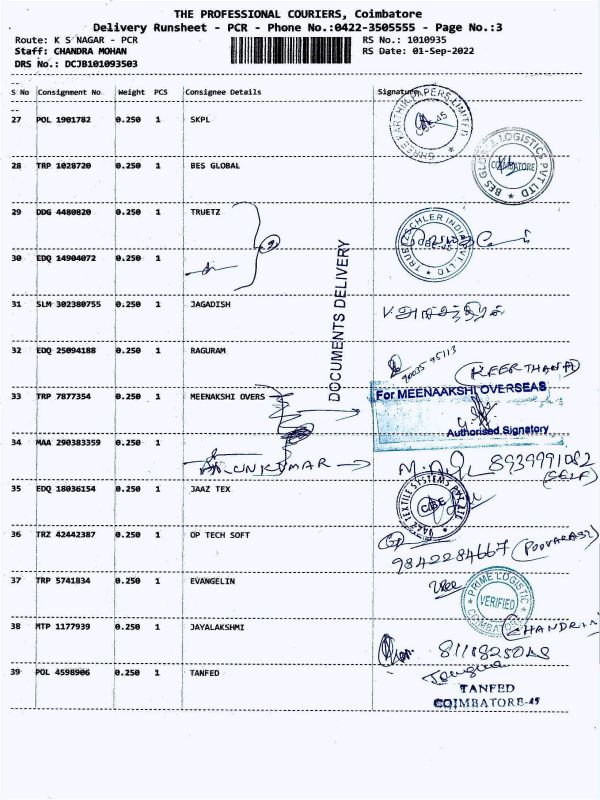 THE PROFESSIONAL COURIERS, Coimbatore
Delivery Runsheet - PCR - Phone No.:0422-3505555 - Page No.:3
Route: K S NAGAR - PCR RS No.: 1010935
Staff: CHANDRA MOHAN RS Date: 01-Sep-2022
DRS No.: DCJB101093503
S No Consignment No Weight PCS Consignee Details Signature
27 POL 1901782 0.250 1 SKPL
SHREE KARTHIK PAPERS LIMITED
CBE-45
28 TRP 1028720 0.250 1 BES GLOBAL
BES GLOBAL LOGISTICS PVT LTD
COIMBATORE
29 DDG 4480820 0.250 1 TRUETZ
TRUETZSCHLER INDIA PVT LTD
CBE-45
30 EDQ 14904072 0.250 1
DOCUMENTS DELIVERY
31 SLM 302380755 0.250 1 JAGADISH
32 EDQ 25094188 0.250 1 RAGURAM
90035-95113
KEERTHANA
33 TRP 7877354 0.250 1 MEENAKSHI OVERS
For MEENAAKSHI OVERSEAS
Authorised Signatory
34 MAA 290383359 0.250 1
ARUNKUMAR
8939991082
(SELF)
35 EDQ 18036154 0.250 1 JAAZ TEX
JAAZ TEXTILE SYSTEMS PVT LTD
CBE
36 TRZ 42442387 0.250 1 OP TECH SOFT
9842284667
37 TRP 5741834 0.250 1 EVANGELIN
PRIME LOGISTIC
VERIFIED
COIMBATORE
38 MTP 1177939 0.250 1 JAYALAKSHMI
39 POL 4598906 0.250 1 TANFED
TANFED
COIMBATORE-45